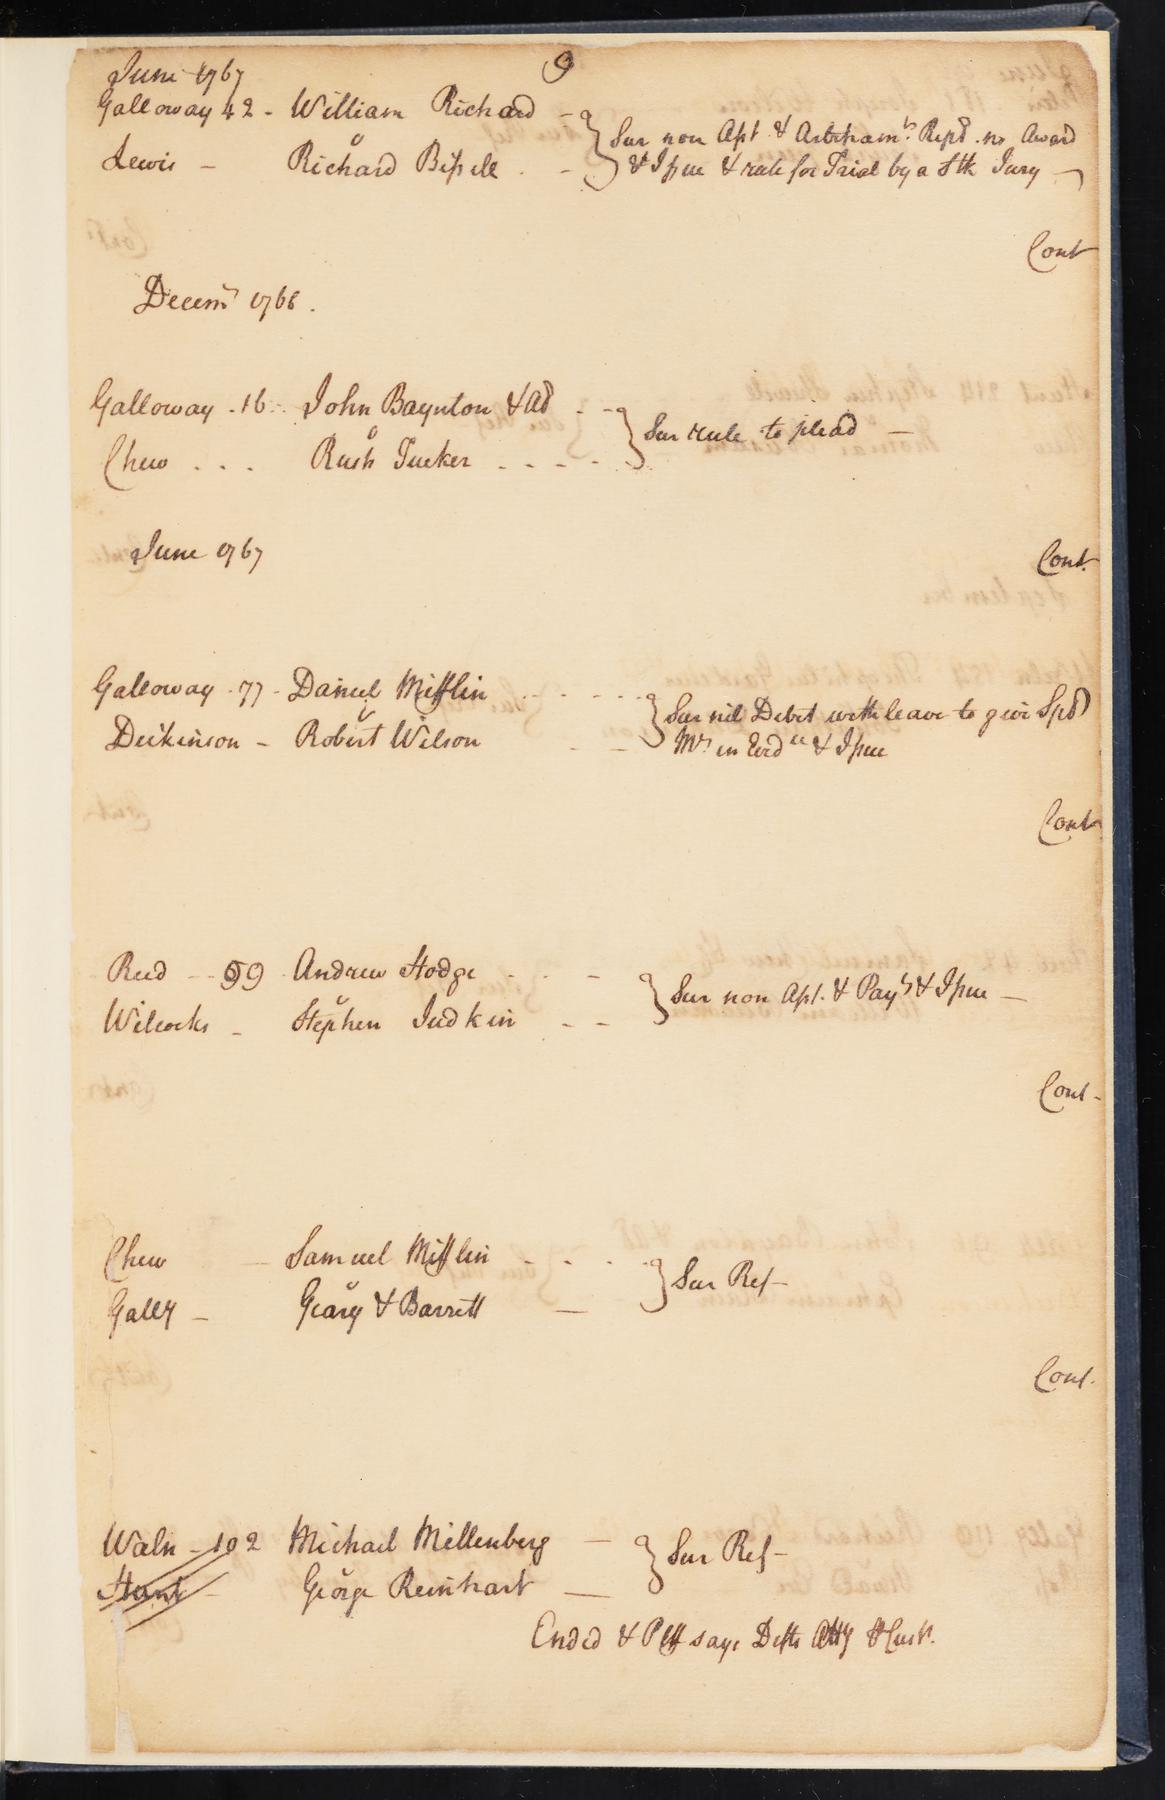 9
June 1767
Galloway 42 - William Richard -
v
Lewis - Richard Bissell . -
Sur non Asst & Arbitramt. Repd. no Award
& Issue & rule for Trial by a Stk Jury -
Cont
Decemr 1766.
Galloway - 16 - John Baynton & Al - -
v
Chew . . . Rush Tucker - - - -
Sur rule to plead -
June 1767
Cont.
Galloway - 77 - Daniel Mifflin - - - - -
v
Dickinson - Robert Wilson - -
Sur nil Debet with leave to give Spl
Mr in Evdce & Issue
Cont
Reed - - 99 - Andrew Hodge - - -
v
Wilcocks - Stephen Judkin - -
Sur non Asst. & Payt & Issue -
Cont -
Chew - Samuel Mifflin - - - -
v
Gally - Geary & Barrett -
Sur Ref -
Cont.
Waln - 102 Michael Millenberg -
v
Hunt - George Reinhart -
Sur Ref -
Ended & Plff says Defts Atty &